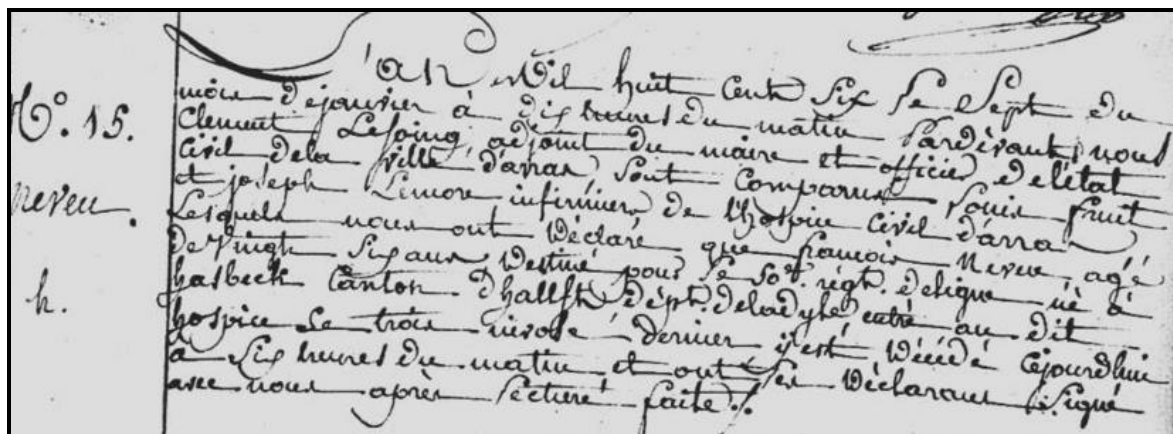 N.° 15.
neveu.
h.
L'an Mil huit Cent Six Le Sept du
mois dejanvier à dix heures du matin Pardevant nous
Clement Lesoing, adjoint du maire et officier deletat
Civil dela Ville d'arras Sont Comparus Louis fruit
et joseph Lemore infirmiers de l'hospice Civil d'arras
Lesquels nous ont Déclaré que françois Neveu agé
de Vingt Six ans Destiné pour Le 50.e régt. deligne né à
hasbeck Canton d'hallst dépt. deladyle entré au dit
hospice Le trois nivose dernier y est Décédé cejourdhui
à Six heures du matin et ont Les Déclarans Signé
avec nous après Lecture faite ./.